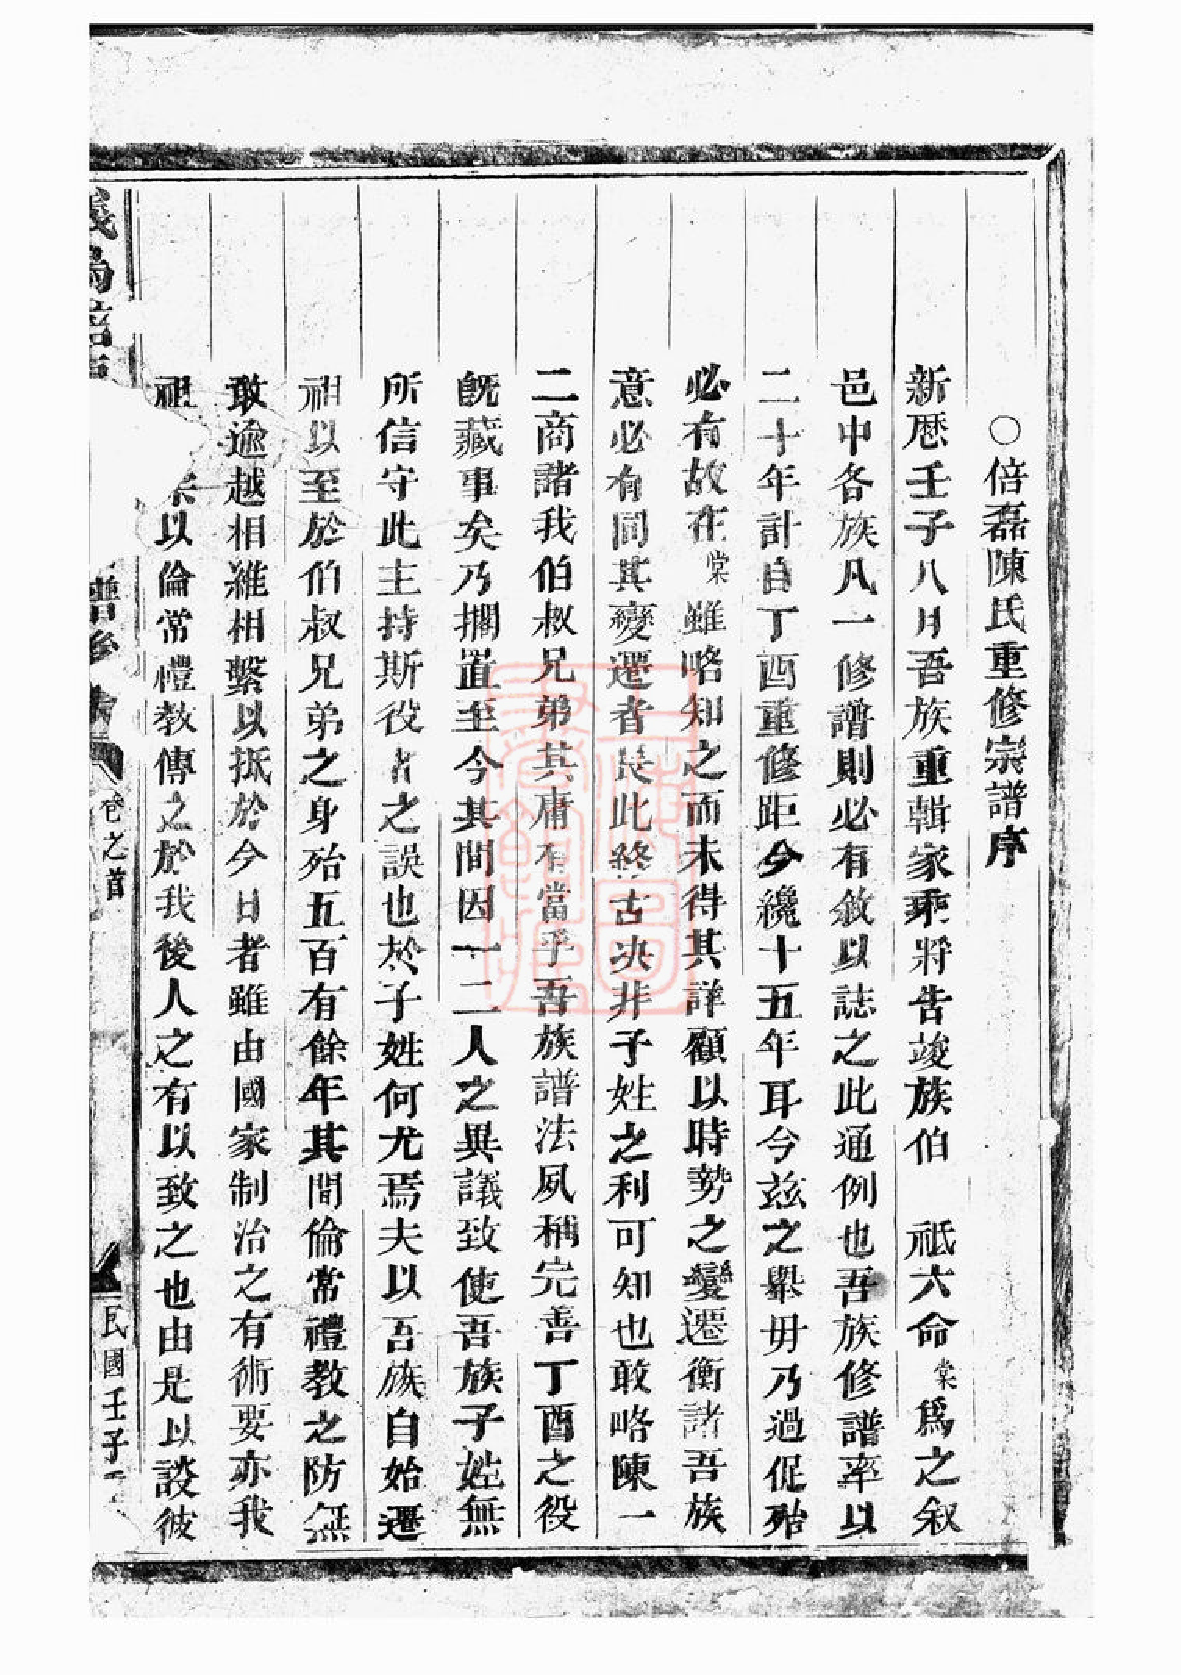 ○倍磊陳氏重修宗譜序
新曆壬子八月吾族重輯家乘將告竣族伯 祇六命棠爲之叙
邑中各族凡一修譜則必有敘以誌之此通例也吾族修譜率以
二十年計自丁酉重修距今纔十五年耳今玆之舉毋乃過促殆
必有故在棠雖略知之而未得其詳顧以時勢之變遷衡諸吾族
意必有同其變遷者長此終古决非子姓之利可知也敢略陳一
二商諸我伯叔兄弟其庸有當乎吾族譜法夙稱完善丁酉之役
旣藏事矣乃擱置至今其間因一二人之異議致使吾族子姓無
所信守此主持斯役者之誤也於子姓何尤焉夫以吾族自始遷
祖以至於伯叔兄弟之身殆五百有餘年其間倫常禮教之防無
敢逾越相維相繫以抵於今日者雖由國家制治之有術要亦我
祖宗以倫常禮教傳之於我後人之有以致之也由是以談彼
義烏倍 譜 卷之首 民國壬子